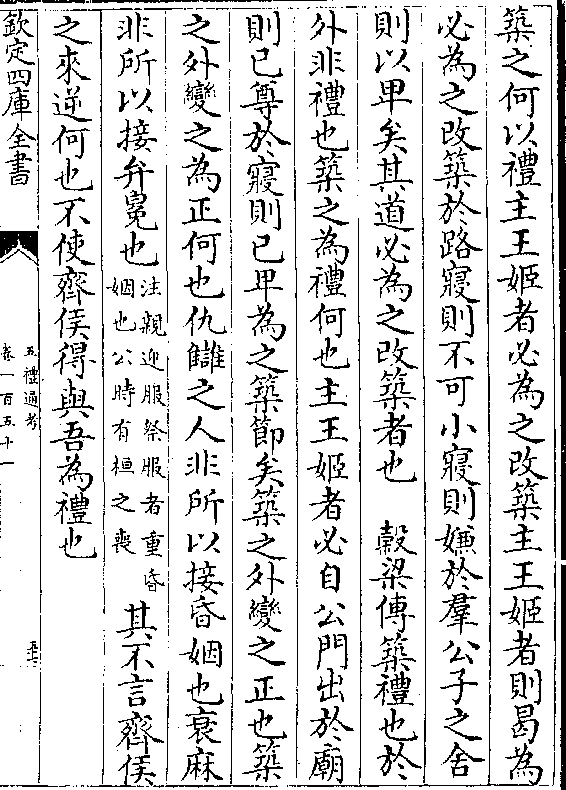 築之何以禮主王姬者必為之改築主王姬者則曷為
必為之改築於路寢則不可小寢則嫌於羣公子之舍
則以卑矣其道必為之改築者也　穀梁傳築禮也於
外非禮也築之為禮何也主王姬者必自公門出於廟
則已尊於寢則已卑為之築節矣築之外變之正也築
之外變之為正何也仇讎之人非所以接昏姻也衰麻
非所以接弁冕也
注親迎服祭服者重昏
姻也公時有桓之喪
其不言齊侯
之來逆何也不使齊侯得與吾為禮也
欽定四庫全書
五禮通考
卷一百五十一